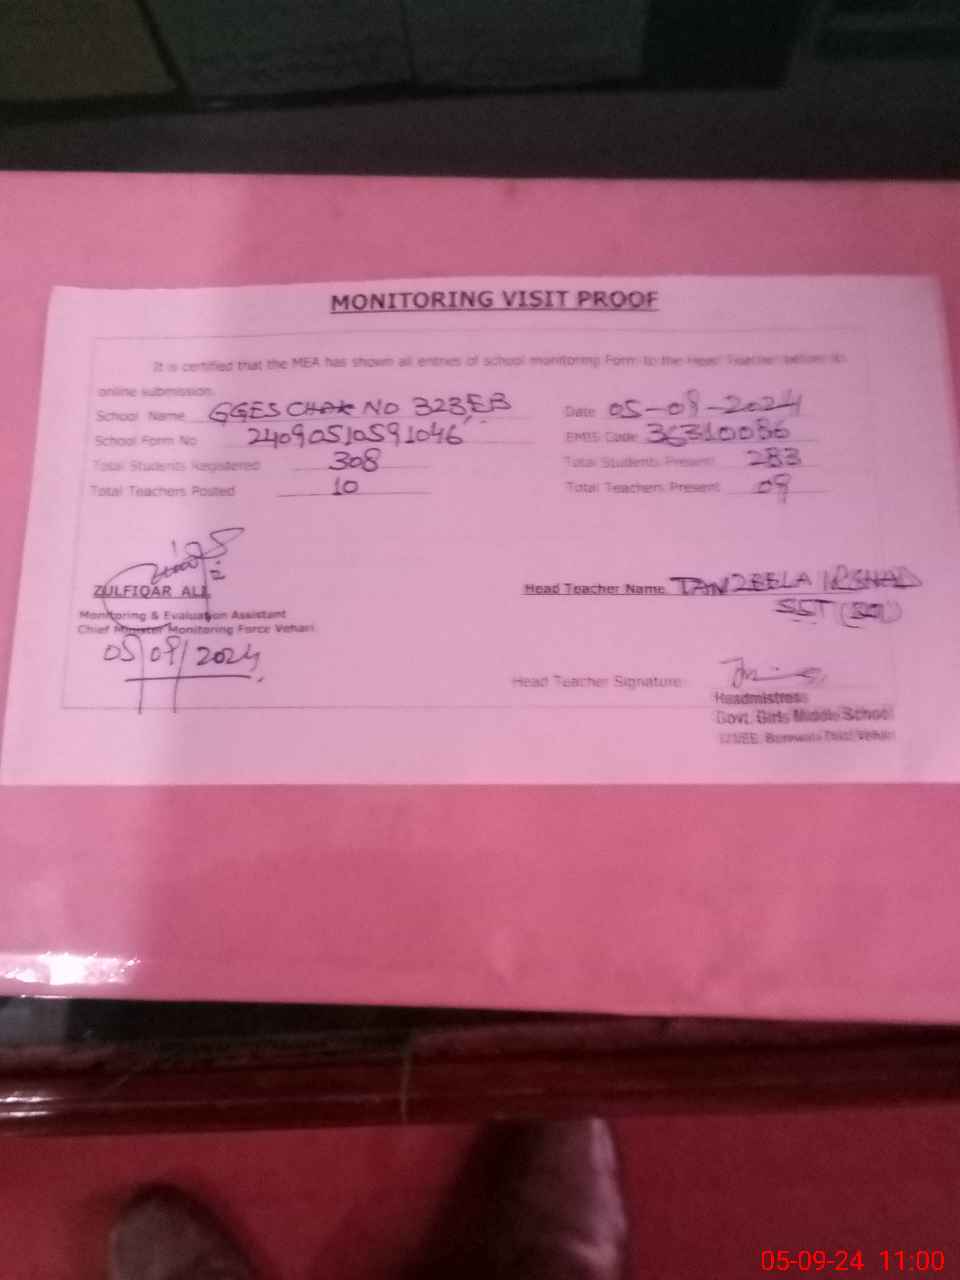 MONITORING VISIT PROOF
It is certified that the MEA has shown all entries of school monitoring Form to the Head Teacher before its
online submission.
School Name GGES CHAK NO 323,EB
Date 05-09-2024
School Form No 24090510591046
EMIS Code 36310086
Total Students Registered 308
Total Students Present 283
Total Teachers Posted 10
Total Teachers Present 09
ZULFIQAR ALI
Monitoring & Evaluation Assistant
Chief Minister Monitoring Force Vehari
05/09/2024
Head Teacher Name TANZEELA IRSHAD
SST
Head Teacher Signature
Headmistress
Govt. Girls Middle School
Vehari
05-09-24 11:00